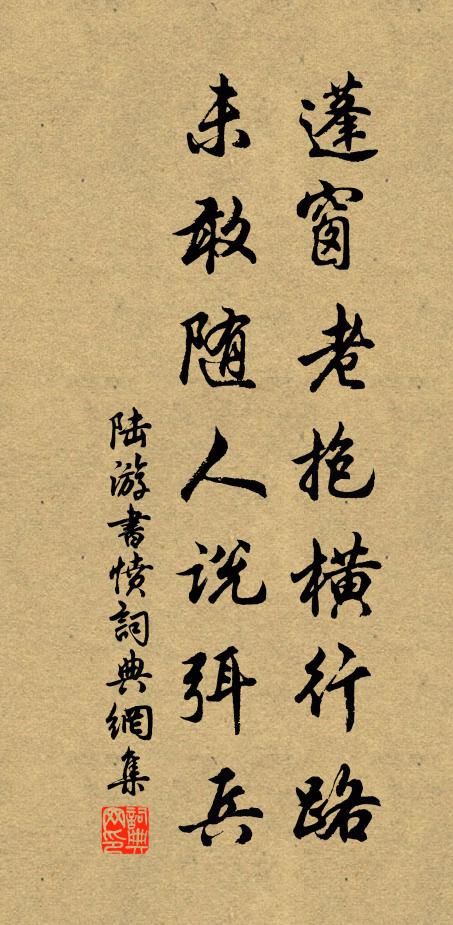 蓬窗老抱横行路
未敢随人说弭兵
陆游書愤詞典網集
詞典网印